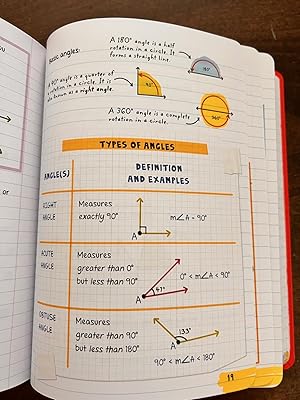 ou
or
Basic angles:
A 180° angle is a half
rotation in a circle. It
forms a straight line.
180°
90° angle is a quarter of
rotation in a circle. It is
known as a right angle.
90°
A 360° angle is a complete
rotation in a circle.
360°
TYPES OF ANGLES
ANGLE(S)
DEFINITION
AND EXAMPLES
RIGHT
ANGLE
Measures
exactly 90°
A
m∠A = 90°
ACUTE
ANGLE
Measures
greater than 0°
but less than 90°
A
47°
0° < m∠A < 90°
OBTUSE
ANGLE
Measures
greater than 90°
but less than 180°
A
133°
90° < m∠A < 180°
19